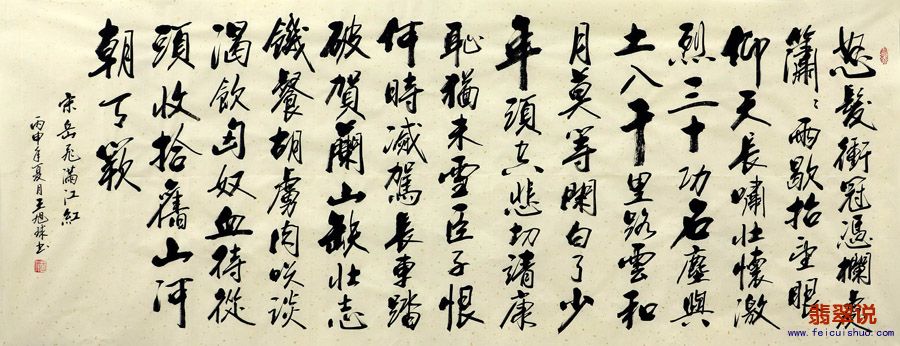 怒髮衝冠憑欄處
簫〻雨歇抬望眼
仰天長嘯壯懷激
烈三十功名塵與
土八千里路雲和
月莫等閑白了少
年頭空悲切靖康
恥猶未雪臣子恨
何時滅駕長車踏
破賀蘭山缺壯志
饑餐胡虜肉笑談
渴飲匈奴血待從
頭收拾舊山河
朝天闕
宋岳飛滿江紅
丙申年夏月王旭球书
翡翠说
www.feicuishuo.com